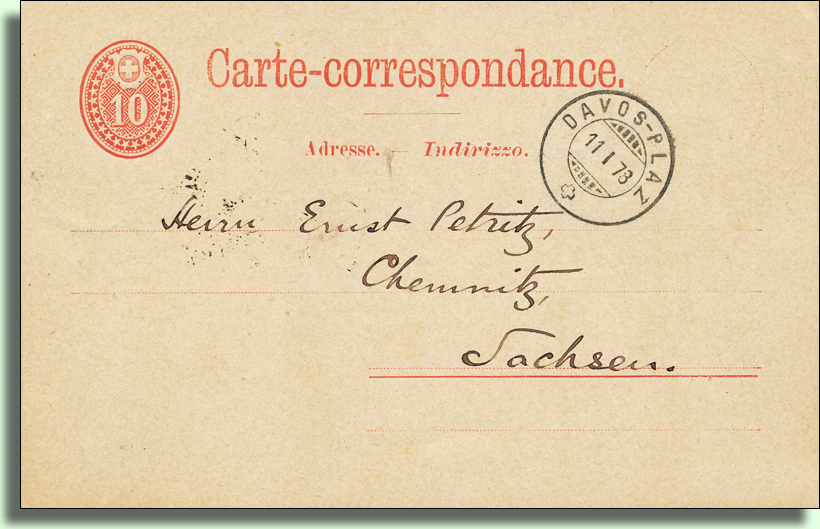 10
Carte-correspondance.
Adresse. — Indirizzo.
DAVOS-PLAZ
11 I 78
Herrn Ernst Petritz,
Chemnitz,
Sachsen.